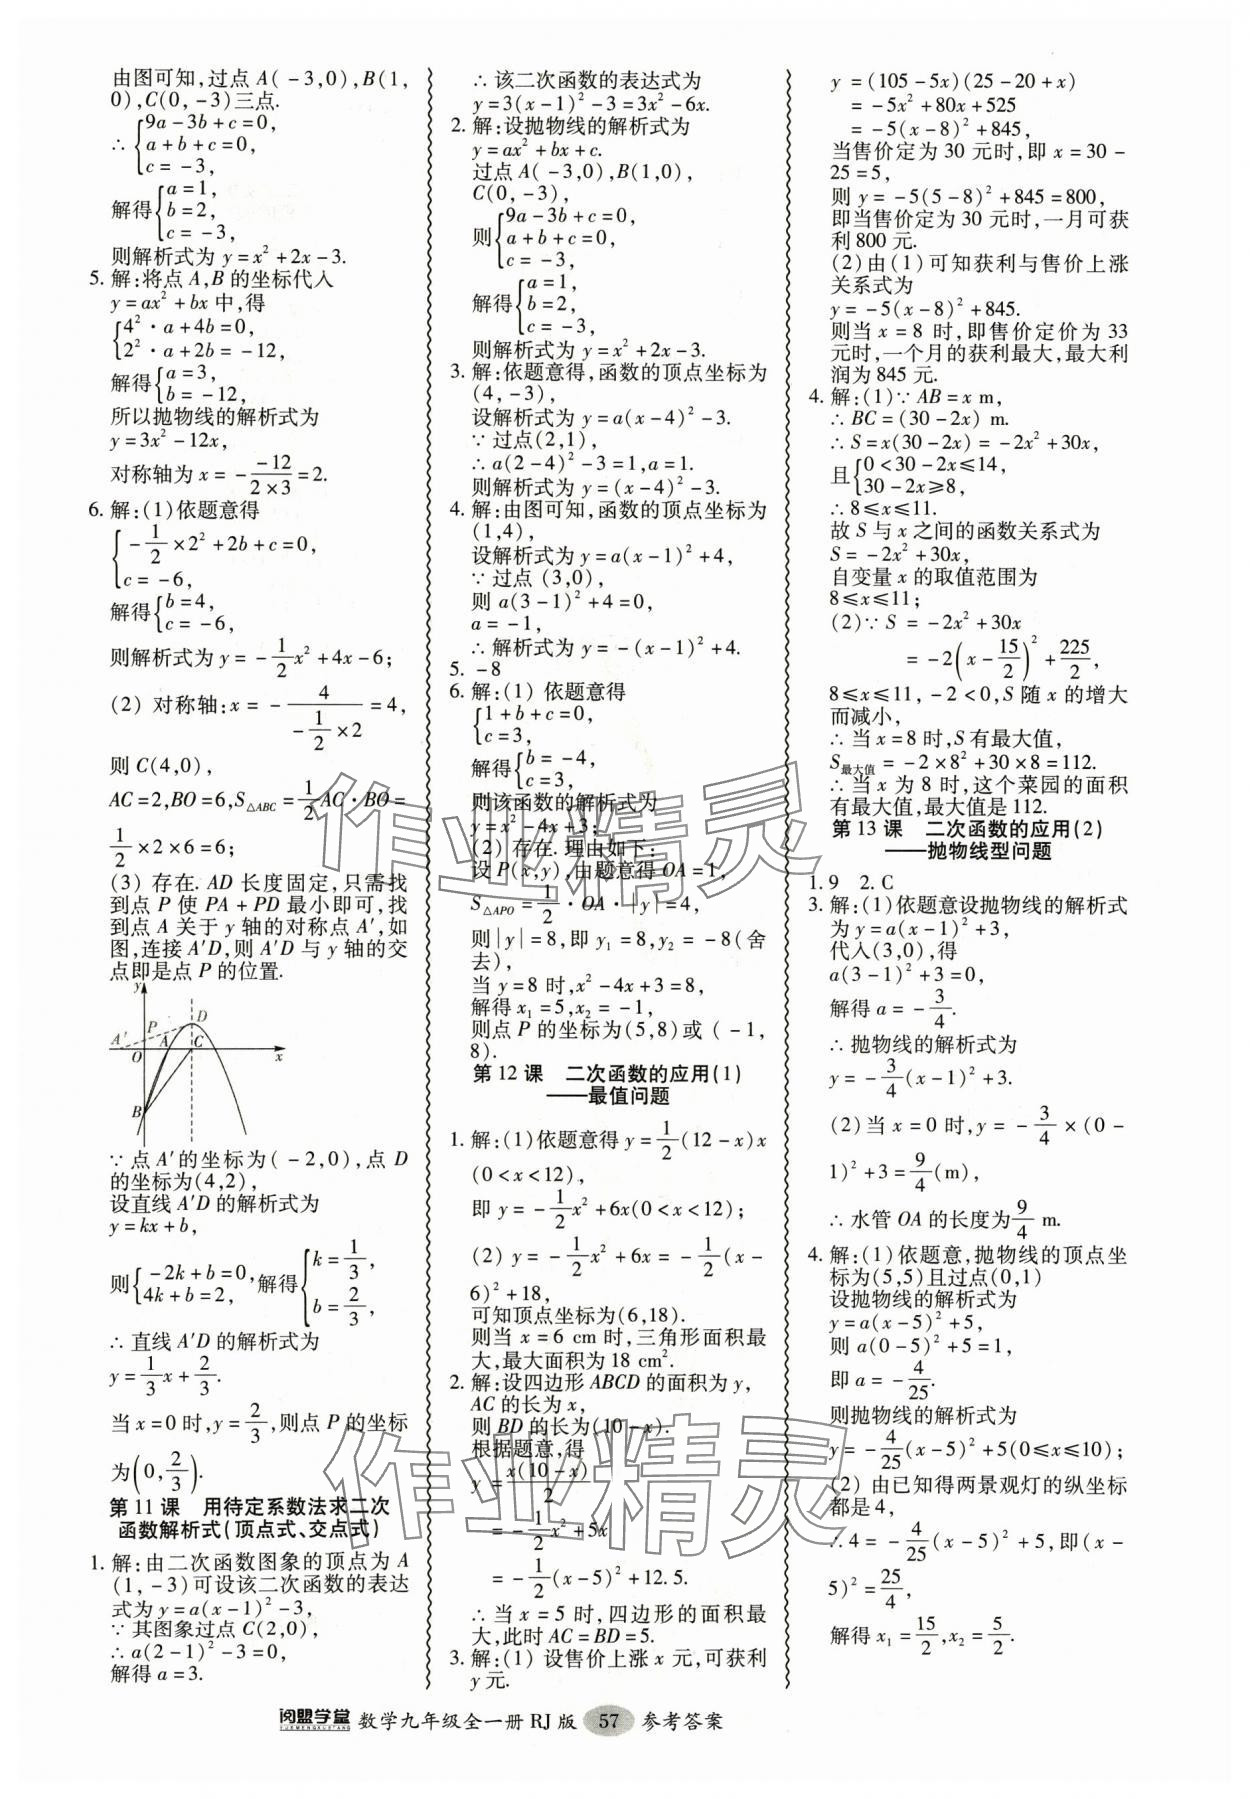 由图可知,过点 A(-3,0),B(1,
0),C(0,-3)三点.
∴ {9a-3b+c=0,
a+b+c=0,
c=-3,
解得{a=1,
b=2,
c=-3,
则解析式为 y=x²+2x-3.
5. 解:将点 A,B 的坐标代入
y=ax²+bx 中,得
{4²·a+4b=0,
2²·a+2b=-12,
解得{a=3,
b=-12,
所以抛物线的解析式为
y=3x²-12x,
对称轴为 x=-\frac{-12}{2×3}=2.
6. 解:(1)依题意得
{-\frac{1}{2}×2²+2b+c=0,
c=-6,
解得{b=4,
c=-6,
则解析式为 y=-\frac{1}{2}x²+4x-6;
(2) 对称轴:x=-\frac{4}{-\frac{1}{2}×2}=4,
则 C(4,0),
AC=2,BO=6,S△ABC=\frac{1}{2}AC·BO=
\frac{1}{2}×2×6=6;
(3) 存在. AD 长度固定,只需找
到点 P 使 PA+PD 最小即可,找
到点 A 关于 y 轴的对称点 A′,如
图,连接 A′D,则 A′D 与 y 轴的交
点即是点 P 的位置.
y
P
D
A′
O
A
C
x
B
∵点 A′的坐标为(-2,0),点 D
的坐标为(4,2),
设直线 A′D 的解析式为
y=kx+b,
则{-2k+b=0,
4k+b=2,解得{k=\frac{1}{3},
b=\frac{2}{3},
∴直线 A′D 的解析式为
y=\frac{1}{3}x+\frac{2}{3}.
当 x=0 时,y=\frac{2}{3},则点 P 的坐标
为(0,\frac{2}{3}).
第 11 课 用待定系数法求二次
函数解析式(顶点式、交点式)
1. 解:由二次函数图象的顶点为 A
(1,-3)可设该二次函数的表达
式为 y=a(x-1)²-3,
∵其图象过点 C(2,0),
∴a(2-1)²-3=0,
解得 a=3.
∴该二次函数的表达式为
y=3(x-1)²-3=3x²-6x.
2. 解:设抛物线的解析式为
y=ax²+bx+c.
过点 A(-3,0),B(1,0),
C(0,-3),
则{9a-3b+c=0,
a+b+c=0,
c=-3,
解得{a=1,
b=2,
c=-3,
则解析式为 y=x²+2x-3.
3. 解:依题意得,函数的顶点坐标为
(4,-3),
设解析式为 y=a(x-4)²-3.
∵过点(2,1),
∴a(2-4)²-3=1,a=1.
则解析式为 y=(x-4)²-3.
4. 解:由图可知,函数的顶点坐标为
(1,4),
设解析式为 y=a(x-1)²+4,
∵过点 (3,0),
则 a(3-1)²+4=0,
a=-1,
∴解析式为 y=-(x-1)²+4.
5. -8
6. 解:(1) 依题意得
{1+b+c=0,
c=3,
解得{b=-4,
c=3,
则该函数的解析式为
y=x²-4x+3;
(2) 存在. 理由如下:
设 P(x,y),由题意得 OA=1,
S△APO=\frac{1}{2}·OA·|y|=4,
则|y|=8,即 y₁=8,y₂=-8(舍
去),
当 y=8 时,x²-4x+3=8,
解得 x₁=5,x₂=-1,
则点 P 的坐标为(5,8)或(-1,
8).
第 12 课 二次函数的应用(1)
——最值问题
1. 解:(1)依题意得 y=\frac{1}{2}(12-x)x
(0<x<12),
即 y=-\frac{1}{2}x²+6x(0<x<12);
(2) y=-\frac{1}{2}x²+6x=-\frac{1}{2}(x-
6)²+18,
可知顶点坐标为(6,18).
则当 x=6 cm 时,三角形面积最
大,最大面积为 18 cm².
2. 解:设四边形 ABCD 的面积为 y,
AC 的长为 x,
则 BD 的长为(10-x).
根据题意,得
y=\frac{x(10-x)}{2}
=-\frac{1}{2}x²+5x
=-\frac{1}{2}(x-5)²+12.5.
∴当 x=5 时,四边形的面积最
大,此时 AC=BD=5.
3. 解:(1) 设售价上涨 x 元,可获利
y 元.
y=(105-5x)(25-20+x)
=-5x²+80x+525
=-5(x-8)²+845,
当售价定为 30 元时,即 x=30-
25=5,
则 y=-5(5-8)²+845=800,
即当售价定为 30 元时,一月可获
利 800 元.
(2)由(1)可知获利与售价上涨
关系式为
y=-5(x-8)²+845.
则当 x=8 时,即售价定价为 33
元时,一个月的获利最大,最大利
润为 845 元.
4. 解:(1)∵AB=x m,
∴BC=(30-2x) m.
∴S=x(30-2x)=-2x²+30x,
且{0<30-2x≤14,
30-2x≥8,
∴8≤x≤11.
故 S 与 x 之间的函数关系式为
S=-2x²+30x,
自变量 x 的取值范围为
8≤x≤11;
(2)∵S=-2x²+30x
=-2(x-\frac{15}{2})²+\frac{225}{2},
8≤x≤11,-2<0,S 随 x 的增大
而减小,
∴当 x=8 时,S 有最大值,
S最大值=-2×8²+30×8=112.
∴当 x 为 8 时,这个菜园的面积
有最大值,最大值是 112.
第 13 课 二次函数的应用(2)
——抛物线型问题
1. 9 2. C
3. 解:(1)依题意设抛物线的解析式
为 y=a(x-1)²+3,
代入(3,0),得
a(3-1)²+3=0,
解得 a=-\frac{3}{4}.
∴抛物线的解析式为
y=-\frac{3}{4}(x-1)²+3.
(2)当 x=0 时,y=-\frac{3}{4}×(0-
1)²+3=\frac{9}{4}(m),
∴水管 OA 的长度为\frac{9}{4} m.
4. 解:(1)依题意,抛物线的顶点坐
标为(5,5)且过点(0,1)
设抛物线的解析式为
y=a(x-5)²+5,
则 a(0-5)²+5=1,
即 a=-\frac{4}{25}.
则抛物线的解析式为
y=-\frac{4}{25}(x-5)²+5(0≤x≤10);
(2) 由已知得两景观灯的纵坐标
都是 4,
∴4=-\frac{4}{25}(x-5)²+5,即(x-
5)²=\frac{25}{4},
解得 x₁=\frac{15}{2},x₂=\frac{5}{2}.
作业精灵
作业精灵
阅盟学堂 YUEMENGXUETANG 数学九年级全一册 RJ 版 57 参考答案